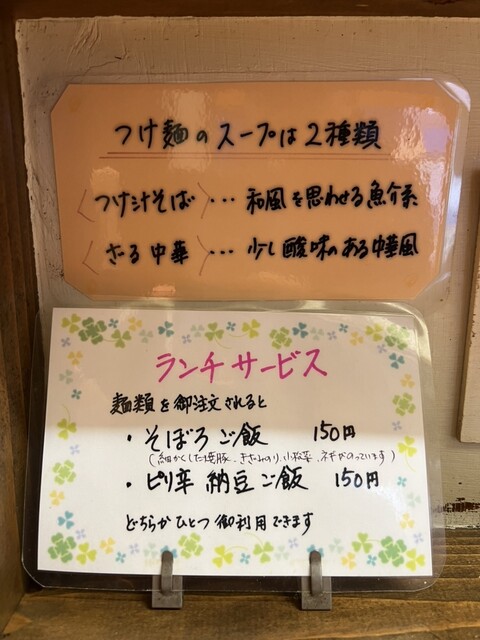 つけ麺のスープは2種類
〈つけ汁そば〉… 和風を思わせる魚介系
〈ざる中華〉… 少し酸味のある中華風
ランチサービス
麺類を御注文されると
・そぼろご飯 150円
(細かくした焼豚、きざみのり、小松菜、ネギがのっています)
・ピリ辛納豆ご飯 150円
どちらかひとつ御利用できます